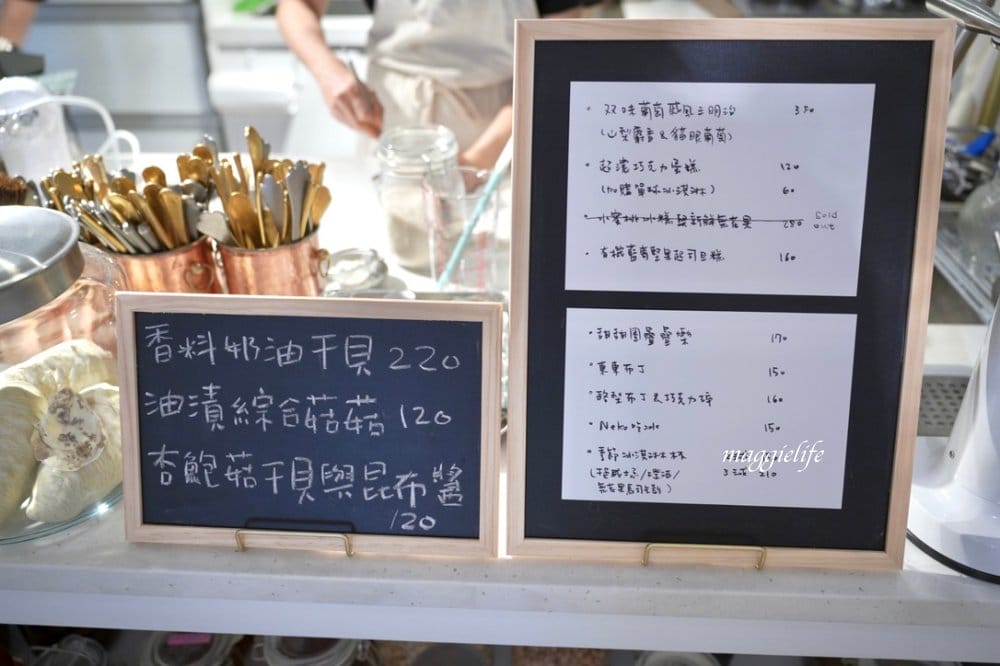 香料奶油干貝 220
油漬綜合菇菇 120
杏鮑菇干貝與昆布醬
120
• 双味葡萄戚風三明治 350
(山梨麝香&貓眼葡萄)
• 超濃巧克力蛋糕 120
(加購單球冰淇淋) 60
• 水蜜桃冰糕與新鮮無花果 280 Sold out
• 有機藍莓堅果起司蛋糕 160
• 甜甜圈疊疊樂 170
• 東東布丁 150
• 酪梨布丁&巧克力碎 160
• Neko吃cole 150
• 季節冰淇淋杯
3球 210
maggielife